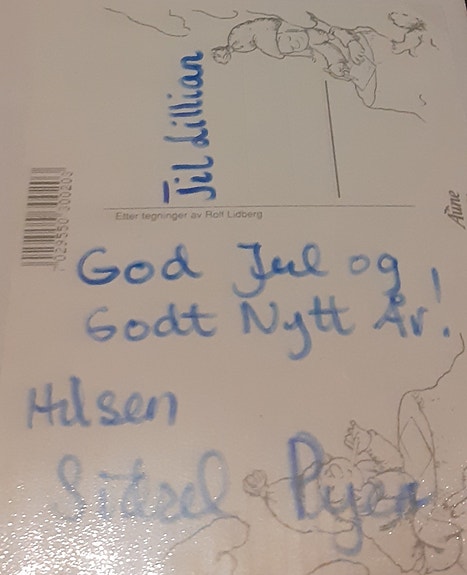 Til Lillian
Etter tegninger av Rolf Lidberg
Aune
7029550300203
God Jul og
Godt Nytt År!
Hilsen
Sidsel